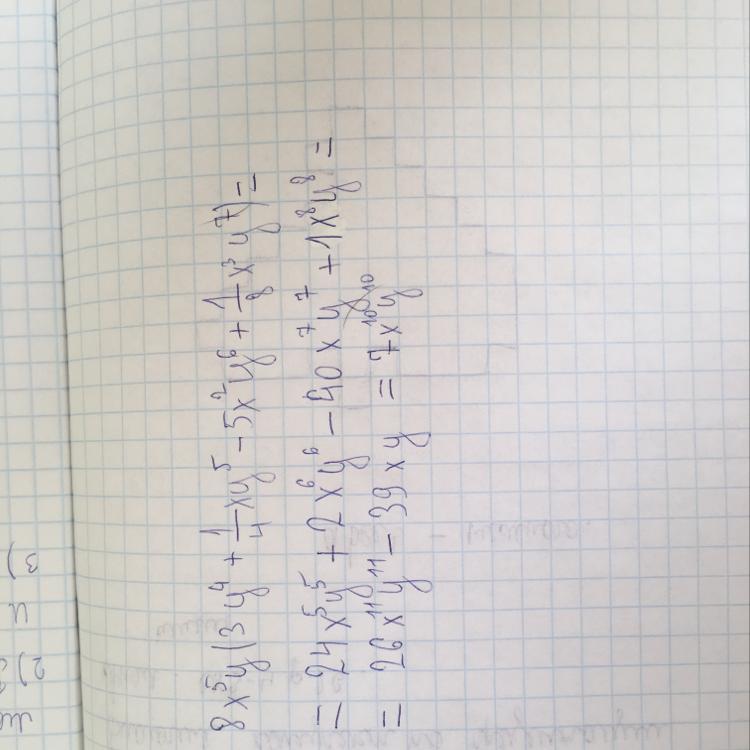 8x⁵y(3y⁴ + 1/4 xy⁵ - 5x²y⁶ + 1/8 x³y⁷) =
= 24x⁵y⁵ + 2x⁶y⁶ - 40x⁷y⁷ + 1x⁸y⁸ =
= 26x¹¹y¹¹ - 39xy = 7x¹⁰y¹⁰
3)
2)